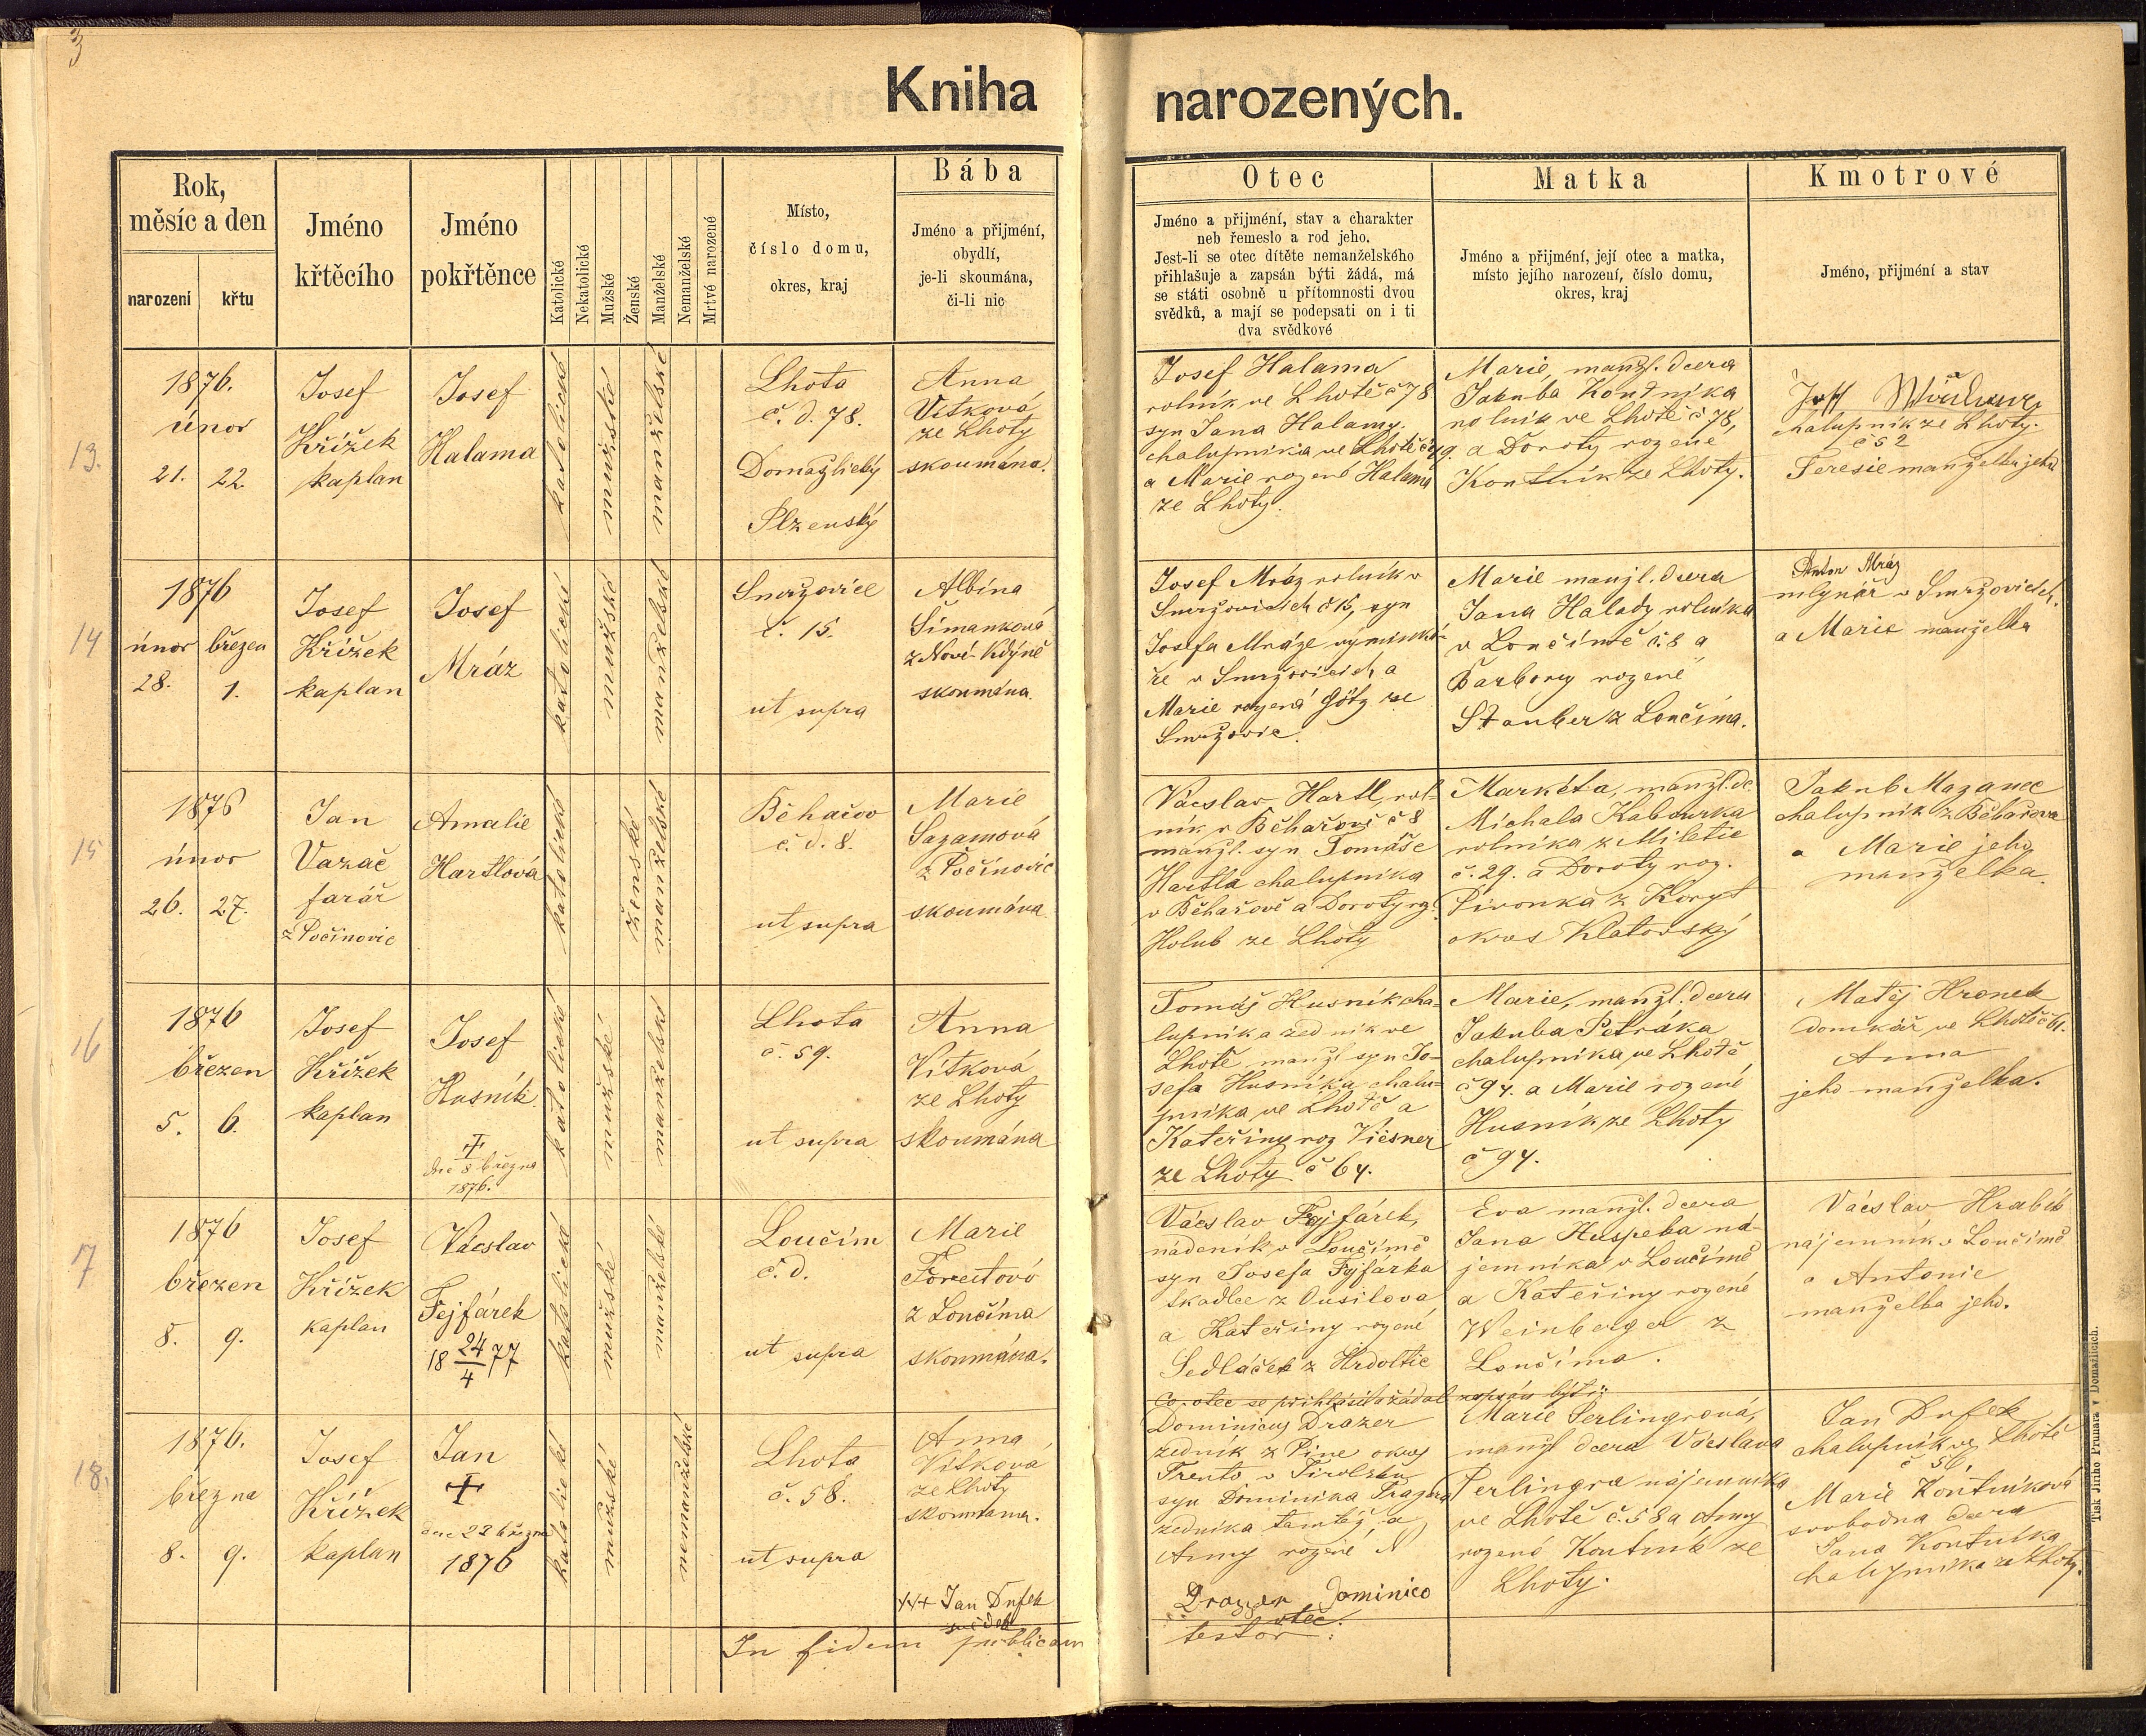 3
Kniha narozených.
Rok,
měsíc a den
narození
křtu
Jméno
křtěcího
Jméno
pokřtěnce
Katolické
Nekatolické
Mužské
Ženské
Manželské
Nemanželské
Mrtvě narozené
Místo,
číslo domu,
okres, kraj
Bába
Jméno a přijmení,
obydlí,
je-li skoumána,
či-li nic
Otec
Jméno a přijmení, stav a charakter
neb řemeslo a rod jeho.
Jest-li se otec dítěte nemanželského
přihlašuje a zapsán býti žádá, má
se státi osobně u přítomnosti dvou
svědků, a mají se podepsati on i ti
dva svědkové
Matka
Jméno a přijmení, její otec a matka,
místo jejího narození, číslo domu,
okres, kraj
Kmotrové
Jméno, přijmení a stav
13.
1876.
únor
21. 22.
Josef
Křížek
kaplan
Josef
Halama
katolické
mužské
manželské
Lhota
č. d. 78.
Domažlický
Plzenský
Anna
Vítková
ze Lhoty
skoumána.
Josef Halama
rolník ve Lhotě č 78
syn Jana Halamy,
chalupníka ve Lhotě
a Marie rozené Halama
ze Lhoty.
Marie, manžl. dcera
Jakuba Kontníka
rolník ve Lhotě č 78,
a Doroty rozené
Kontník ze Lhoty.
chalupník ze Lhoty.
č 52
Teresie manželka jeho
14
1876
únor březen
28. 1.
Josef
Křížek
kaplan
Josef
Mráz
katolické
mužské
manželské
Smržovice
č. 15.
ut supra
Albína
Šimanková
z Nové Kdýně
skoumána.
Josef Mráz rolník v
Smržovicích č 15, syn
Josefa Mráze vyminká-
ře v Smržovicích a
Marie rozená Götz ze
Smržovic.
Marie manžl. dcera
Jana Halady rolníka
v Loučímě č. 8 a
Barbory rozené
Stauber z Loučíma.
Anton Mráz
mlynář v Smržovicích.
a Marie manželka
15
1876
únor
26. 27.
Jan
Vazač
farář
z Počinovic
Amalie
Hartlová
katolické
ženské
manželské
Běhařov
č. d. 8.
ut supra
Marie
Sazamová
z Počinovic
skoumána
Václav Hartl, rol-
ník v Běhařově č 8
manžl. syn Tomáše
Hartla chalupníka
v Běhařově a Doroty rz.
Holub ze Lhoty
Markéta, manžl. dc.
Michala Kabourka
rolníka z Miletic
č. 29. a Doroty roz.
Pivonka z Koryt
okres Klatovský
Jakub Mazanec
chalupník z Běhařova
a Marie jeho
manželka.
16
1876
březen
5. 6.
Josef
Křížek
kaplan
Josef
Husník
+
dne 8 března
1876.
katolické
mužské
manželské
Lhota
č. 59.
ut supra
Anna
Vítková
ze Lhoty
skoumána
Tomáš Husník cha-
lupník a zedník ve
Lhotě, manžl syn Jo-
sefa Husníka chalu-
pníka ve Lhotě a
Kateřiny roz Viesner
ze Lhoty č 64.
Marie, manžl. dcera
Jakuba Petráka
chalupníka ve Lhotě
č 94. a Marie rozené
Husník ze Lhoty
č 94.
Matěj Hronek
domkář ve Lhotě č 61.
Anna
jeho manželka.
17
1876
březen
8. 9.
Josef
Křížek
kaplan
Václav
Fejfárek
18 24/4 77
katolické
mužské
manželské
Loučím
č. d.
ut supra
Marie
z Loučíma
skoumána.
Václav Fejfárek,
nádeník v Loučímě
syn Josefa Fejfárka
tkadlce z Ousilova
a Kateřiny rozené
Sedláček z Hrdoltic
Eva manžl. dcera
Jana Huspeka ná-
jemníka v Loučímě
a Kateřiny rozené
Weinberger z
Loučíma.
Václav Hrabík
nájemník v Loučímě
a Antonie
manželka jeho.
18.
1876.
března
8. 9.
Josef
Křížek
kaplan
Jan
+
dne 22 března
1876
katolické
mužské
nemanželské
Lhota
č. 58.
ut supra
Anna
Vítková
ze Lhoty
skoumána.
Co otec se přihlásil a žádal zapsán býti:
Dominicus Drazer
zedník z Pine okres
Trento v Tirolsku
syn Dominika Drazera
zedníka tamtéž a
Anny rozené N
Marie Perlingrová,
manžl dcera Václava
Perlingra nájemníka
ve Lhotě č. 58 a Anny
rozené Kontník ze
Lhoty.
Jan Dufek
chalupník ve Lhotě
č 56,
Marie Kontníková
svobodna dcera
Jana Kontníka
chalupníka ze Lhoty.
+++ Jan Dufek
svědek
Drazer Dominico
otec.
In fidem publicam
testor:
Tisk Jiřího Prunara v Domažlicích.